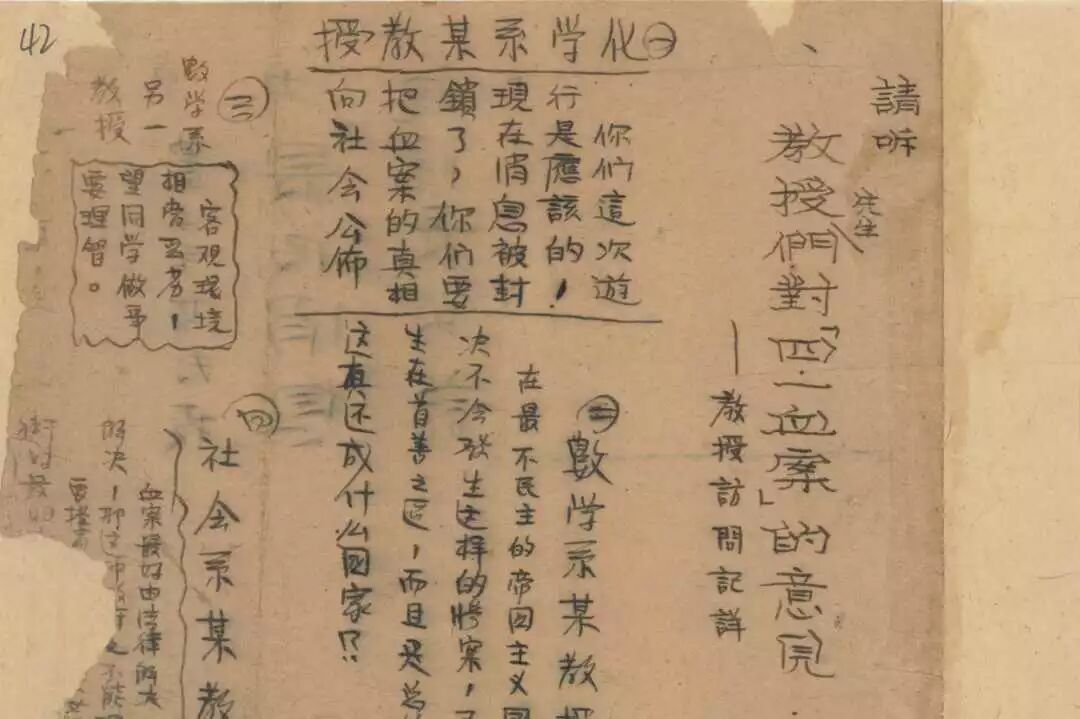 42
請听
教授們對「四·一血案」的意見
先生
——教授訪問記詳
㊀化学系某教授
你們這次遊
行是應該的！
現在消息被封
鎖了，你们要
把血案的真相
向社会公佈
㊁數学系某教授
在最不民主的帝囯主义囯
决不会發生这样的惨案，
生在首善之區，而且是
这真还成什么國家！？
㊂數学系
另一
教授
客观環境
相当
望同学做事
要理智。
㊃社会系某教
血案最好由法律解决
解决！那